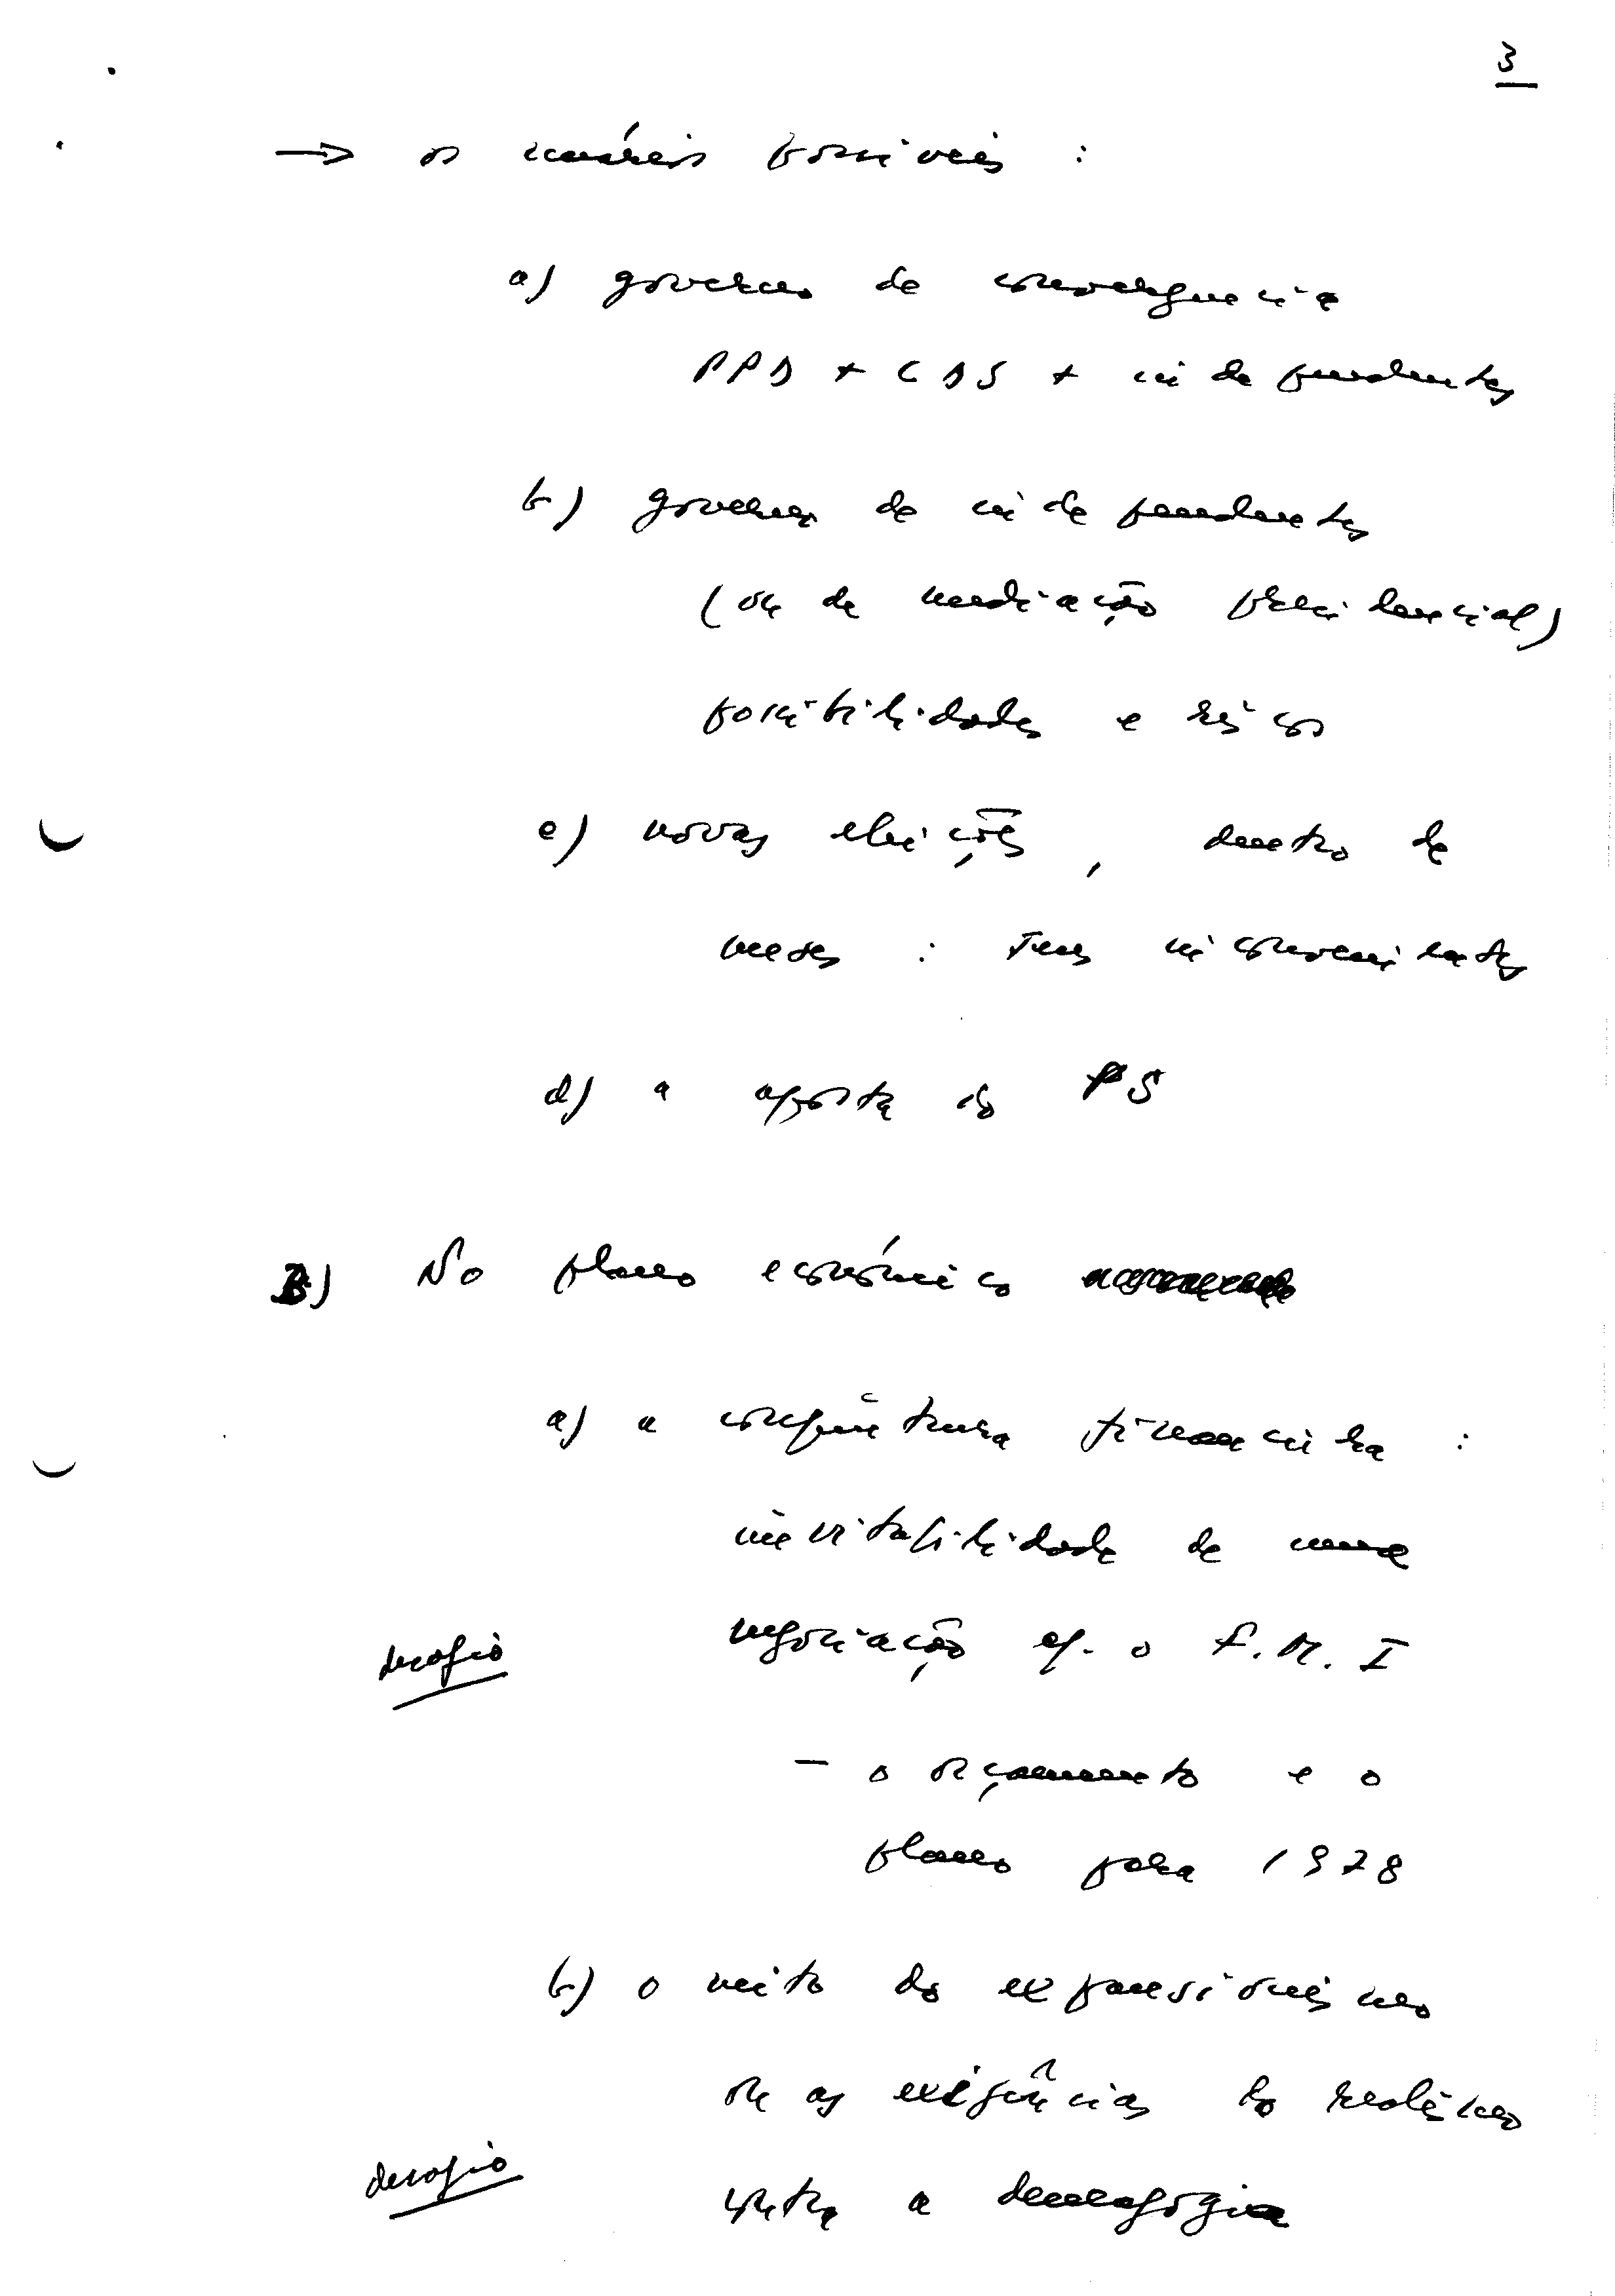 3
→ os cenários possíveis :
a) governo de convergência
PPD + CDS + independentes
b) governo de independentes
(ou de mediação presidencial)
possibilidades e riscos
c) novas eleições, dentro de
meses : seus inconvenientes
d) a aposta do PS
B) No plano económico
a) a conjuntura financeira :
inevitabilidade de uma
desafio
negociação c/. o F.M.I
- o orçamento e o
plano para 1978
b) o mito do expansionismo
ou as exigências do realismo
desafio
contra a demagogia